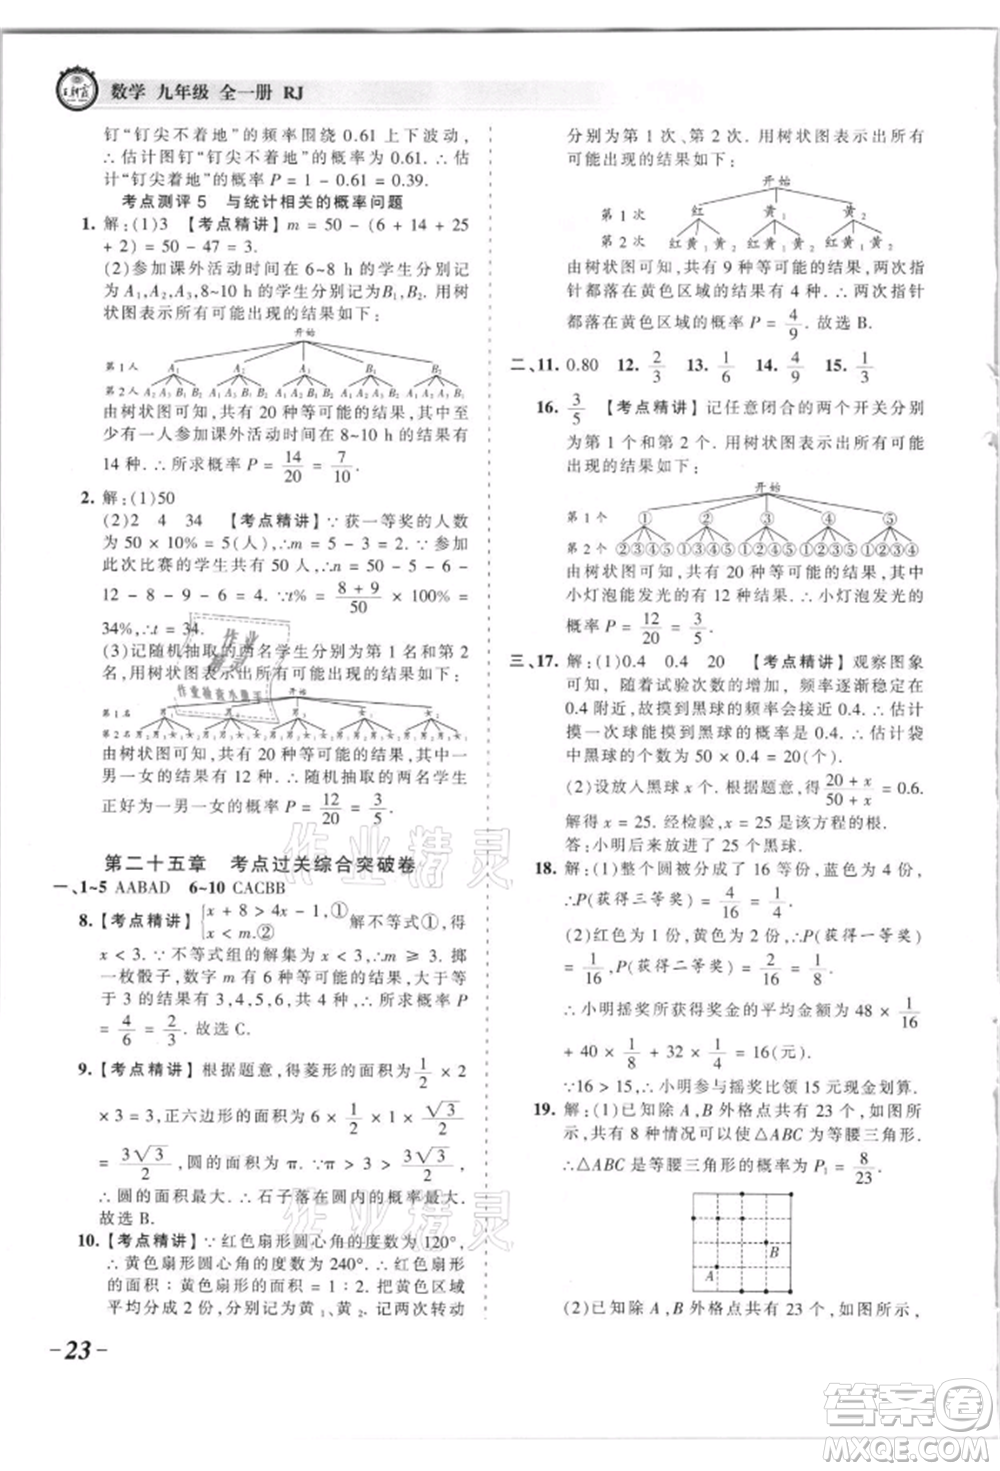 王朝霞
数学 九年级 全一册 RJ
钉“钉尖不着地”的频率围绕 0.61 上下波动，
∴估计图钉“钉尖不着地”的概率为 0.61. ∴估
计“钉尖着地”的概率 P = 1 - 0.61 = 0.39.
考点测评 5 与统计相关的概率问题
1. 解：(1)3 【考点精讲】m = 50 - (6 + 14 + 25
+ 2) = 50 - 47 = 3.
(2)参加课外活动时间在 6~8 h 的学生分别记
为 A₁,A₂,A₃, 8~10 h 的学生分别记为 B₁,B₂. 用树
状图表示出所有可能出现的结果如下：
开始
第 1 人 A₁ A₂ A₃ B₁ B₂
第 2 人 A₂ A₃ B₁ B₂ A₁ A₃ B₁ B₂ A₁ A₂ B₁ B₂ A₁ A₂ A₃ B₂ A₁ A₂ A₃ B₁
由树状图可知，共有 20 种等可能的结果，其中至
少有一人参加课外活动时间在 8~10 h 的结果有
14 种. ∴所求概率 P = 14/20 = 7/10.
2. 解：(1)50
(2)2 4 34 【考点精讲】∵获一等奖的人数
为 50 × 10% = 5(人), ∴ m = 5 - 3 = 2. ∵参加
此次比赛的学生共有 50 人, ∴ n = 50 - 2 - 9 -
12 - 18 - 5 = 4. ∵ t% = (8 + 9)/50 × 100% =
34%, ∴ t = 34.
(3)记随机抽取的两名学生分别为第 1 名和第 2
名, 用树状图表示出所有可能出现的结果如下：
开始
第 1 名 男₁ 男₂ 女₁ 女₂ 女₃
由树状图可知，共有 20 种等可能的结果，其中为
一男一女的结果有 12 种. ∴随机抽取的两名学生
正好是一男一女的概率 P = 12/20 = 3/5.
第二十五章 考点过关综合突破卷
一、1~5 AABAD 6~10 CACBB
8.【考点精讲】{x + 8 > 4x - 1,① x < m.② 解不等式①，得
x < 3. ∵不等式组的解集为 x < 3, ∴ m ≥ 3. ∵掷
一枚骰子，数字 m 有 6 种等可能的结果，大于等
于 3 的结果有 3,4,5,6, 共 4 种, ∴所求概率 P
= 4/6 = 2/3. 故选 C.
9.【考点精讲】根据题意，得菱形的面积为 1/2 × 2
× 3 = 3, 正六边形的面积为 6 × 1/2 × 1 × √3/2
= 3√3/2, 圆的面积为 π. ∵ π > 3 > 3√3/2,
∴圆的面积最大. ∴石子落在圆内的概率最大.
故选 B.
10.【考点精讲】∵红色扇形圆心角的度数为 120°,
∴黄色扇形圆心角的度数为 240°. ∴红色扇形
的面积：黄色扇形的面积 = 1：2. 把黄色区域
平均分成 2 份，分别记为黄₁、黄₂. 记两次转动
分别为第 1 次、第 2 次. 用树状图表示出所有
可能出现的结果如下：
开始
第 1 次 红 黄₁ 黄₂
第 2 次 红 黄₁ 黄₂ 红 黄₁ 黄₂ 红 黄₁ 黄₂
由树状图可知，共有 9 种等可能的结果，两次指
针都落在黄色区域的结果有 4 种, ∴两次指针
都落在黄色区域的概率 P = 4/9. 故选 B.
二、11. 0.80 12. 2/3 13. 1/6 14. 4/9 15. 1/3
16. 3/5 【考点精讲】记任意闭合的两个开关分别
为第 1 个和第 2 个. 用树状图表示出所有可能
出现的结果如下：
开始
第 1 个 ① ② ③ ④ ⑤
第 2 个 ②③④⑤ ①③④⑤ ①②④⑤ ①②③⑤ ①②③④
由树状图可知，共有 20 种等可能的结果，其中
小灯泡能发光的结果有 12 种. ∴小灯泡发光的
概率为 12/20 = 3/5.
三、17. 解：(1)0.4 0.4 20 【考点精讲】观察图象
可知，随着试验次数的增加，频率逐渐稳定在
0.4 附近，故摸到黑球的频率接近 0.4. ∴估计
摸一次球能摸到黑球的概率是 0.4. ∴估计袋
中黑球的个数为 50 × 0.4 = 20(个).
(2)设放入黑球 x 个. 根据题意, 得 (20 + x)/(50 + x) = 0.6.
解得 x = 25. 经检验，x = 25 是该方程的根.
答：小明后来放进了 25 个黑球.
18. 解：(1)整个圆被分成了 16 份，绿色为 4 份，
∴P(获得三等奖) = 4/16 = 1/4.
(2)红色为 1 份，黄色为 2 份, ∴P(获得一等奖)
= 1/16, P(获得二等奖) = 2/16 = 1/8.
∴小明摇奖所获得奖金的平均金额为 48 × 1/16
+ 40 × 1/8 + 32 × 1/4 = 16(元).
∵16 > 15, ∴小明参与摇奖比领 15 元现金划算.
19. 解：(1)已知除 A,B 外格点共有 23 个，如图所
示，共有 8 种情况可以使 △ABC 为等腰三角形.
∴△ABC 是等腰三角形的概率为 P₁ = 8/23.
B
A
(2)已知除 A,B 外格点共有 23 个，如图所示，
- 23 -
作业精灵
作业精灵
作业精灵
作业检查小助手
答案圈
MXQE.COM